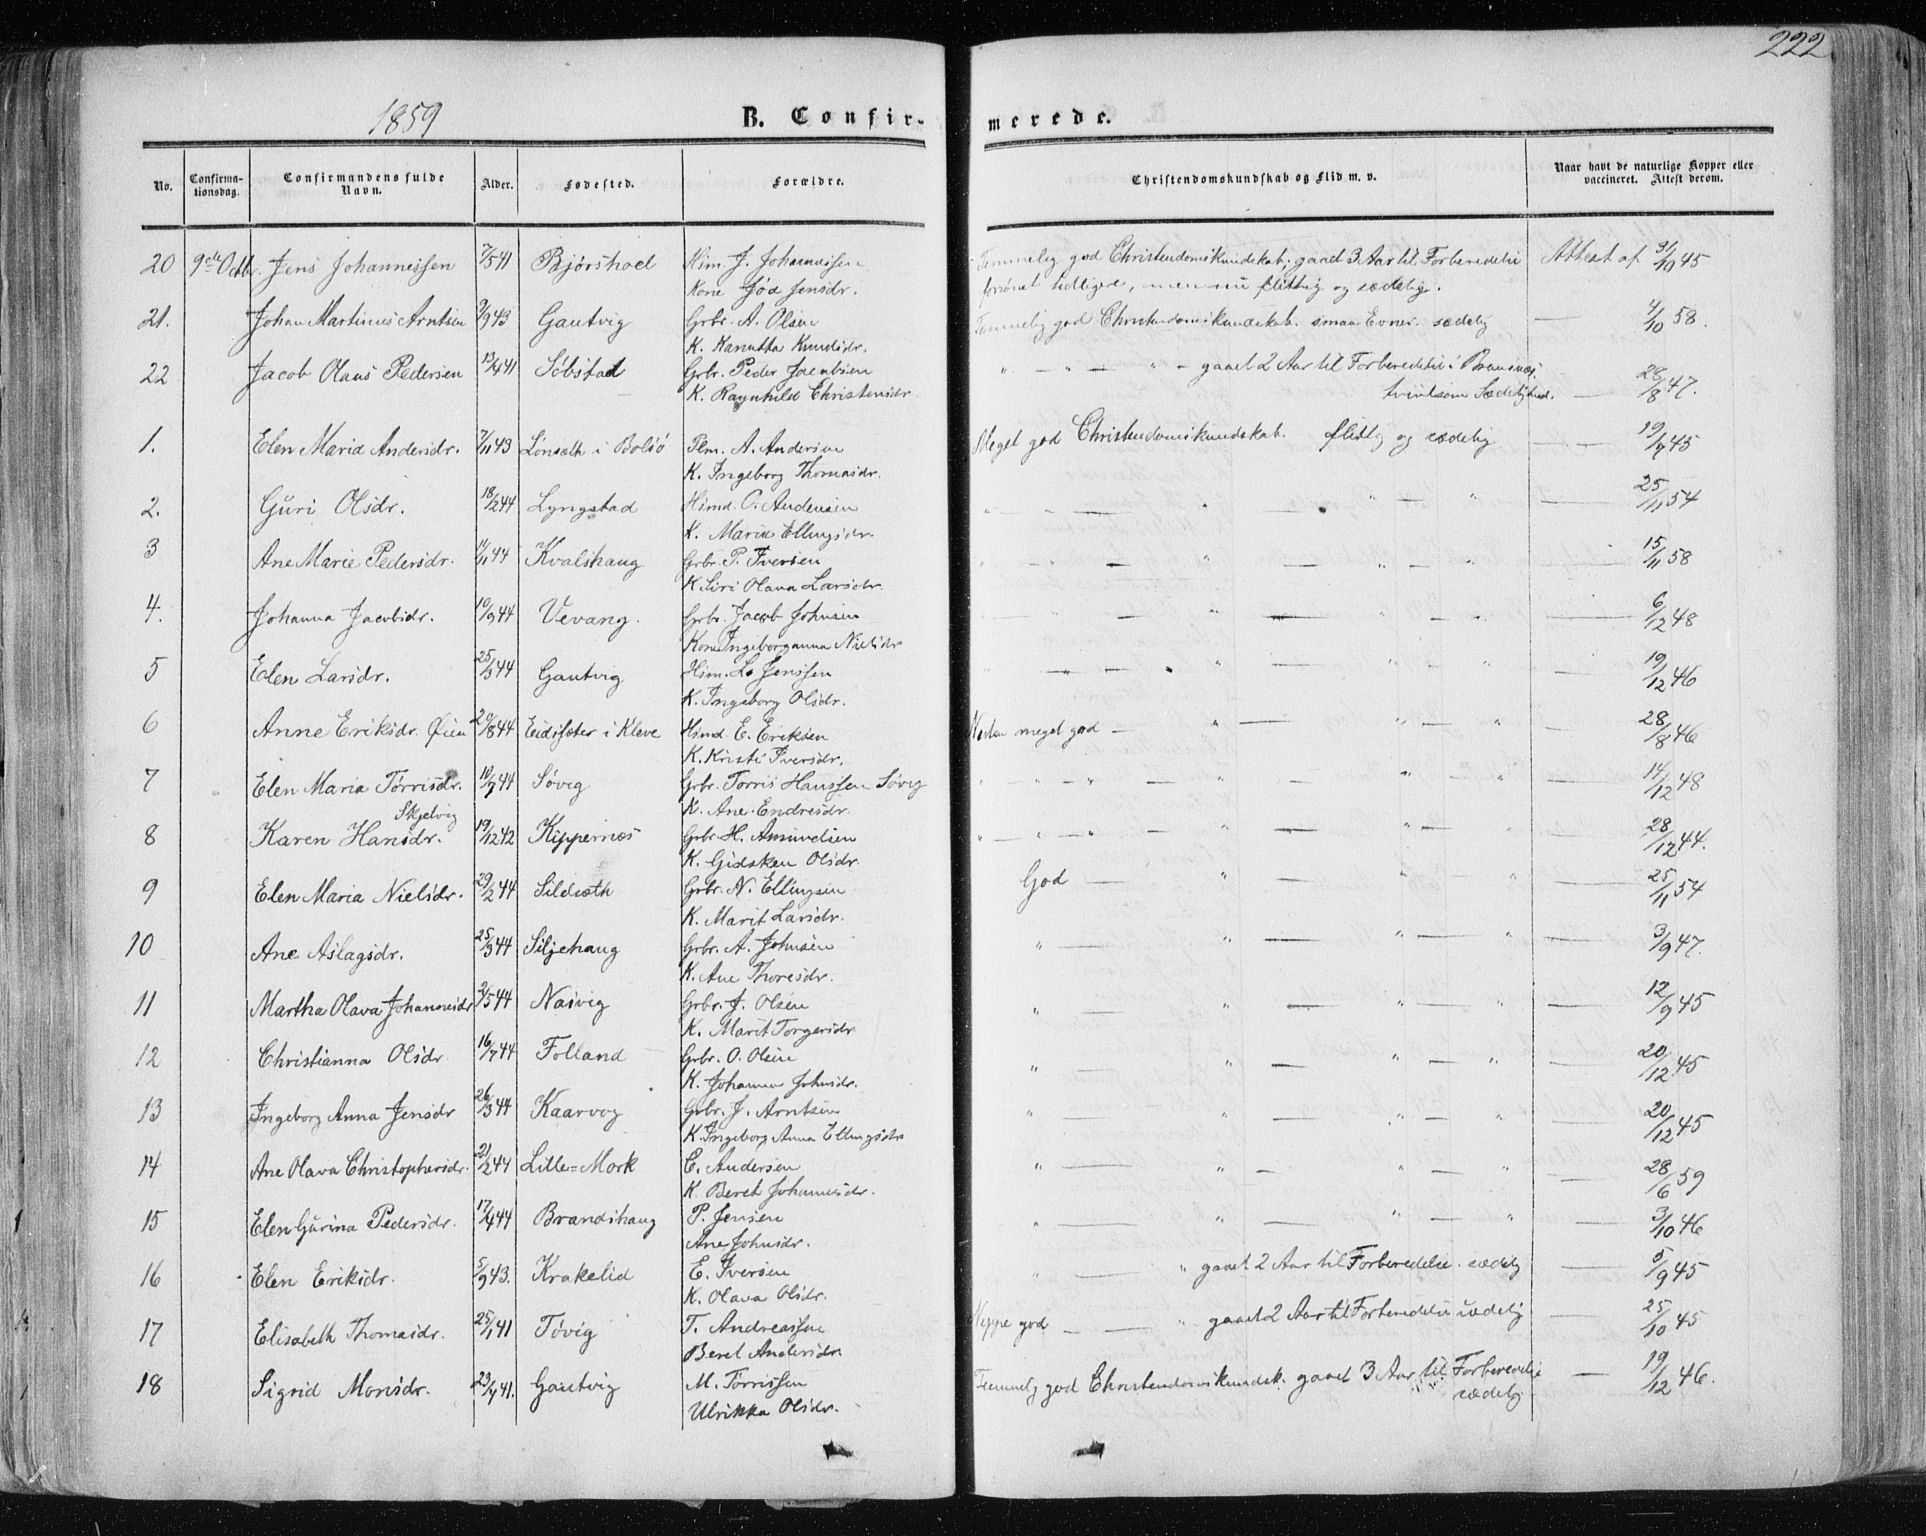 222
1859 B. Confirmerede.
No. Confirmationsdag. Confirmandens fulde Navn. Alder. Fødested. Forældre. Christendomskundskab og Flid m. v. Naar havt de naturlige Kopper eller vaccineret. Attest derom.
20 9de Octbr. Jens Johannessen 7/5 41 Bjørstad Hsm. J. Johannessen Temmelig god Christendomskundskab, gaaet 3 Aar til Forberedelse Attest af 31/10 45
Kone Jensdr. forsømt tidligere, men nu flittig og sædelig.
21. Johan Martinus Arntsen 3/9 43 Gautvig Grbr. A. Olsen Temmelig god Christendomskundskab. smaa Evner. sædelig — 4/10 58.
K. Kanutta Knudsdr.
22 Jacob Olaus Pedersen 13/4 41 Søbstad Grbr. Peder Jacobsen " — " — " — gaaet 2 Aar til Forberedelse i
K. Ragnhild Christensdr. tvivlsom Sædelighed. — 28/8 47.
1. Elen Maria Andersdr. 7/11 43 Lønseth i Bolsø Plm. A. Andersen Meget god Christendomskundskab. flittig og sædelig — 19/7 45
K. Ingeborg Thomasdr.
2. Guri Olsdr. 18/2 44 Lyngstad Hsmd. O. Andersen " — " — " — " — 25/11 54
K. Marie Ellingsdr.
3 Ane Marie Pedersdr. 14/1 44 Kvalshaug Grbr. P. Iversen " — " — " — " — 15/11 58
K. Siri Olava Larsdr.
4. Johanna Jacobsdr. 10/9 44 Vevang. Grbr. Jacob Johnsen " — " — " — " — 6/12 48
Kone Ingeborganna Nielsdr
5 Elen Larsdr. 25/3 44 Gautvig Hsm. L. Jenssen " — " — " — " — 19/12 46
K. Ingeborg Olsdr.
6 Anne Eriksdr. Øien 20/8 44 Eidsæter i Kleve Hsmd. E. Eriksen Næsten meget god — " — " — " — 28/8 46
K. Kristi Iversdr.
7 Elen Maria Tørrisdr. 10/9 44 Søvig Grbr. Torris Hanssen Søvig " — " — " — " — 14/12 48
K. Ane Endresdr.
Skjelvig
8 Karen Hansdr. 19/12 42 Kippernæs Grbr. H. Amundsen " — " — " — " — 28/12 44.
K. Gidsken Olsdr.
9 Elen Maria Nielsdr. 29/2 44 Sildseth Grbr. N. Ellingsen God — " — " — " — 25/11 54
K. Marit Larsdr.
10 Ane Aslagsdr. 25/3 44 Siljehaug Grbr. A. Johnsen " — " — " — " — 3/9 47.
K. Ane Thoresdr.
11 Martha Olava Johannesdr 2/5 44 Nasvig Grbr. J. Olsen " — " — " — " — 12/9 45
K. Marit Torgersdr
12 Christianna Olsdr 16/7 44 Folland Grbr. O. Olsen " — " — " — " — 20/12 45
K. Johanna Johnsdr.
13 Ingeborg Anna Jensdr 26/3 44 Kaarvog Grbr. J. Arntsen " — " — " — " — 20/12 45
K. Ingeborg Anna Ellingsdr
14 Ane Olava Christophersdr. 21/2 44 Lille=Mork C. Andersen " — " — " — " — 28/6 59
K. Beret Johannesdr.
15 Elen Gurina Pedersdr. 17/4 44 Brandshaug P. Jensen " — " — " — " — 3/10 46
Ane Johnsdr.
16 Elen Eriksdr. 5/9 43. Krakelid E. Iversen " — " gaaet 2 Aar til Forberedelse. sædelig — 5/9 45
K. Olava Olsdr.
17 Elisabeth Thomasdr. 25/1 41 Tøvig T. Andreassen Neppe god — " gaaet 2 Aar til Forberedelse sædelig — 25/10 45
Beret Andersdr
18 Sigrid Monsdr. 23/4 41. Gautvig M. Tørrissen Temmelig god Christendomskundsk. gaaet 3 Aar til Forberedelse — 19/12 46.
Ulrikka Olsdr. sædelig